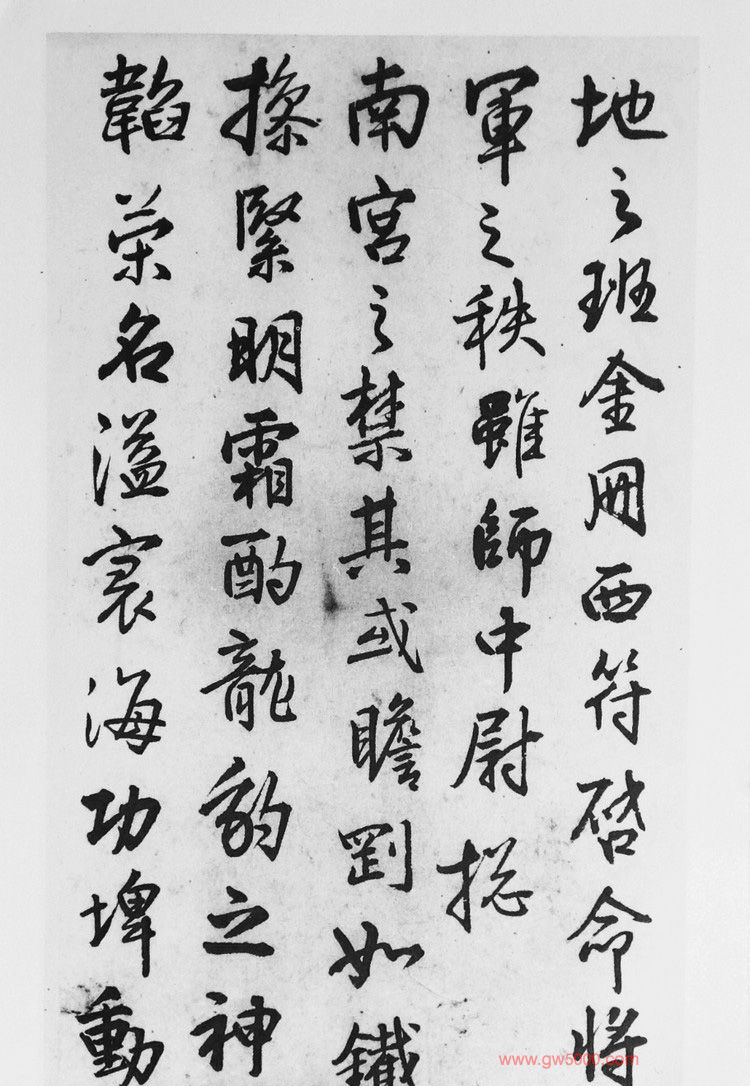 地之班金冊西符啓命将
軍之秩雖師中尉捴
南宮之禁其或瞻剛如鐵
操緊明霜酌龍豹之神
韜榮名溢寰海功埤動
www.gw5000.com